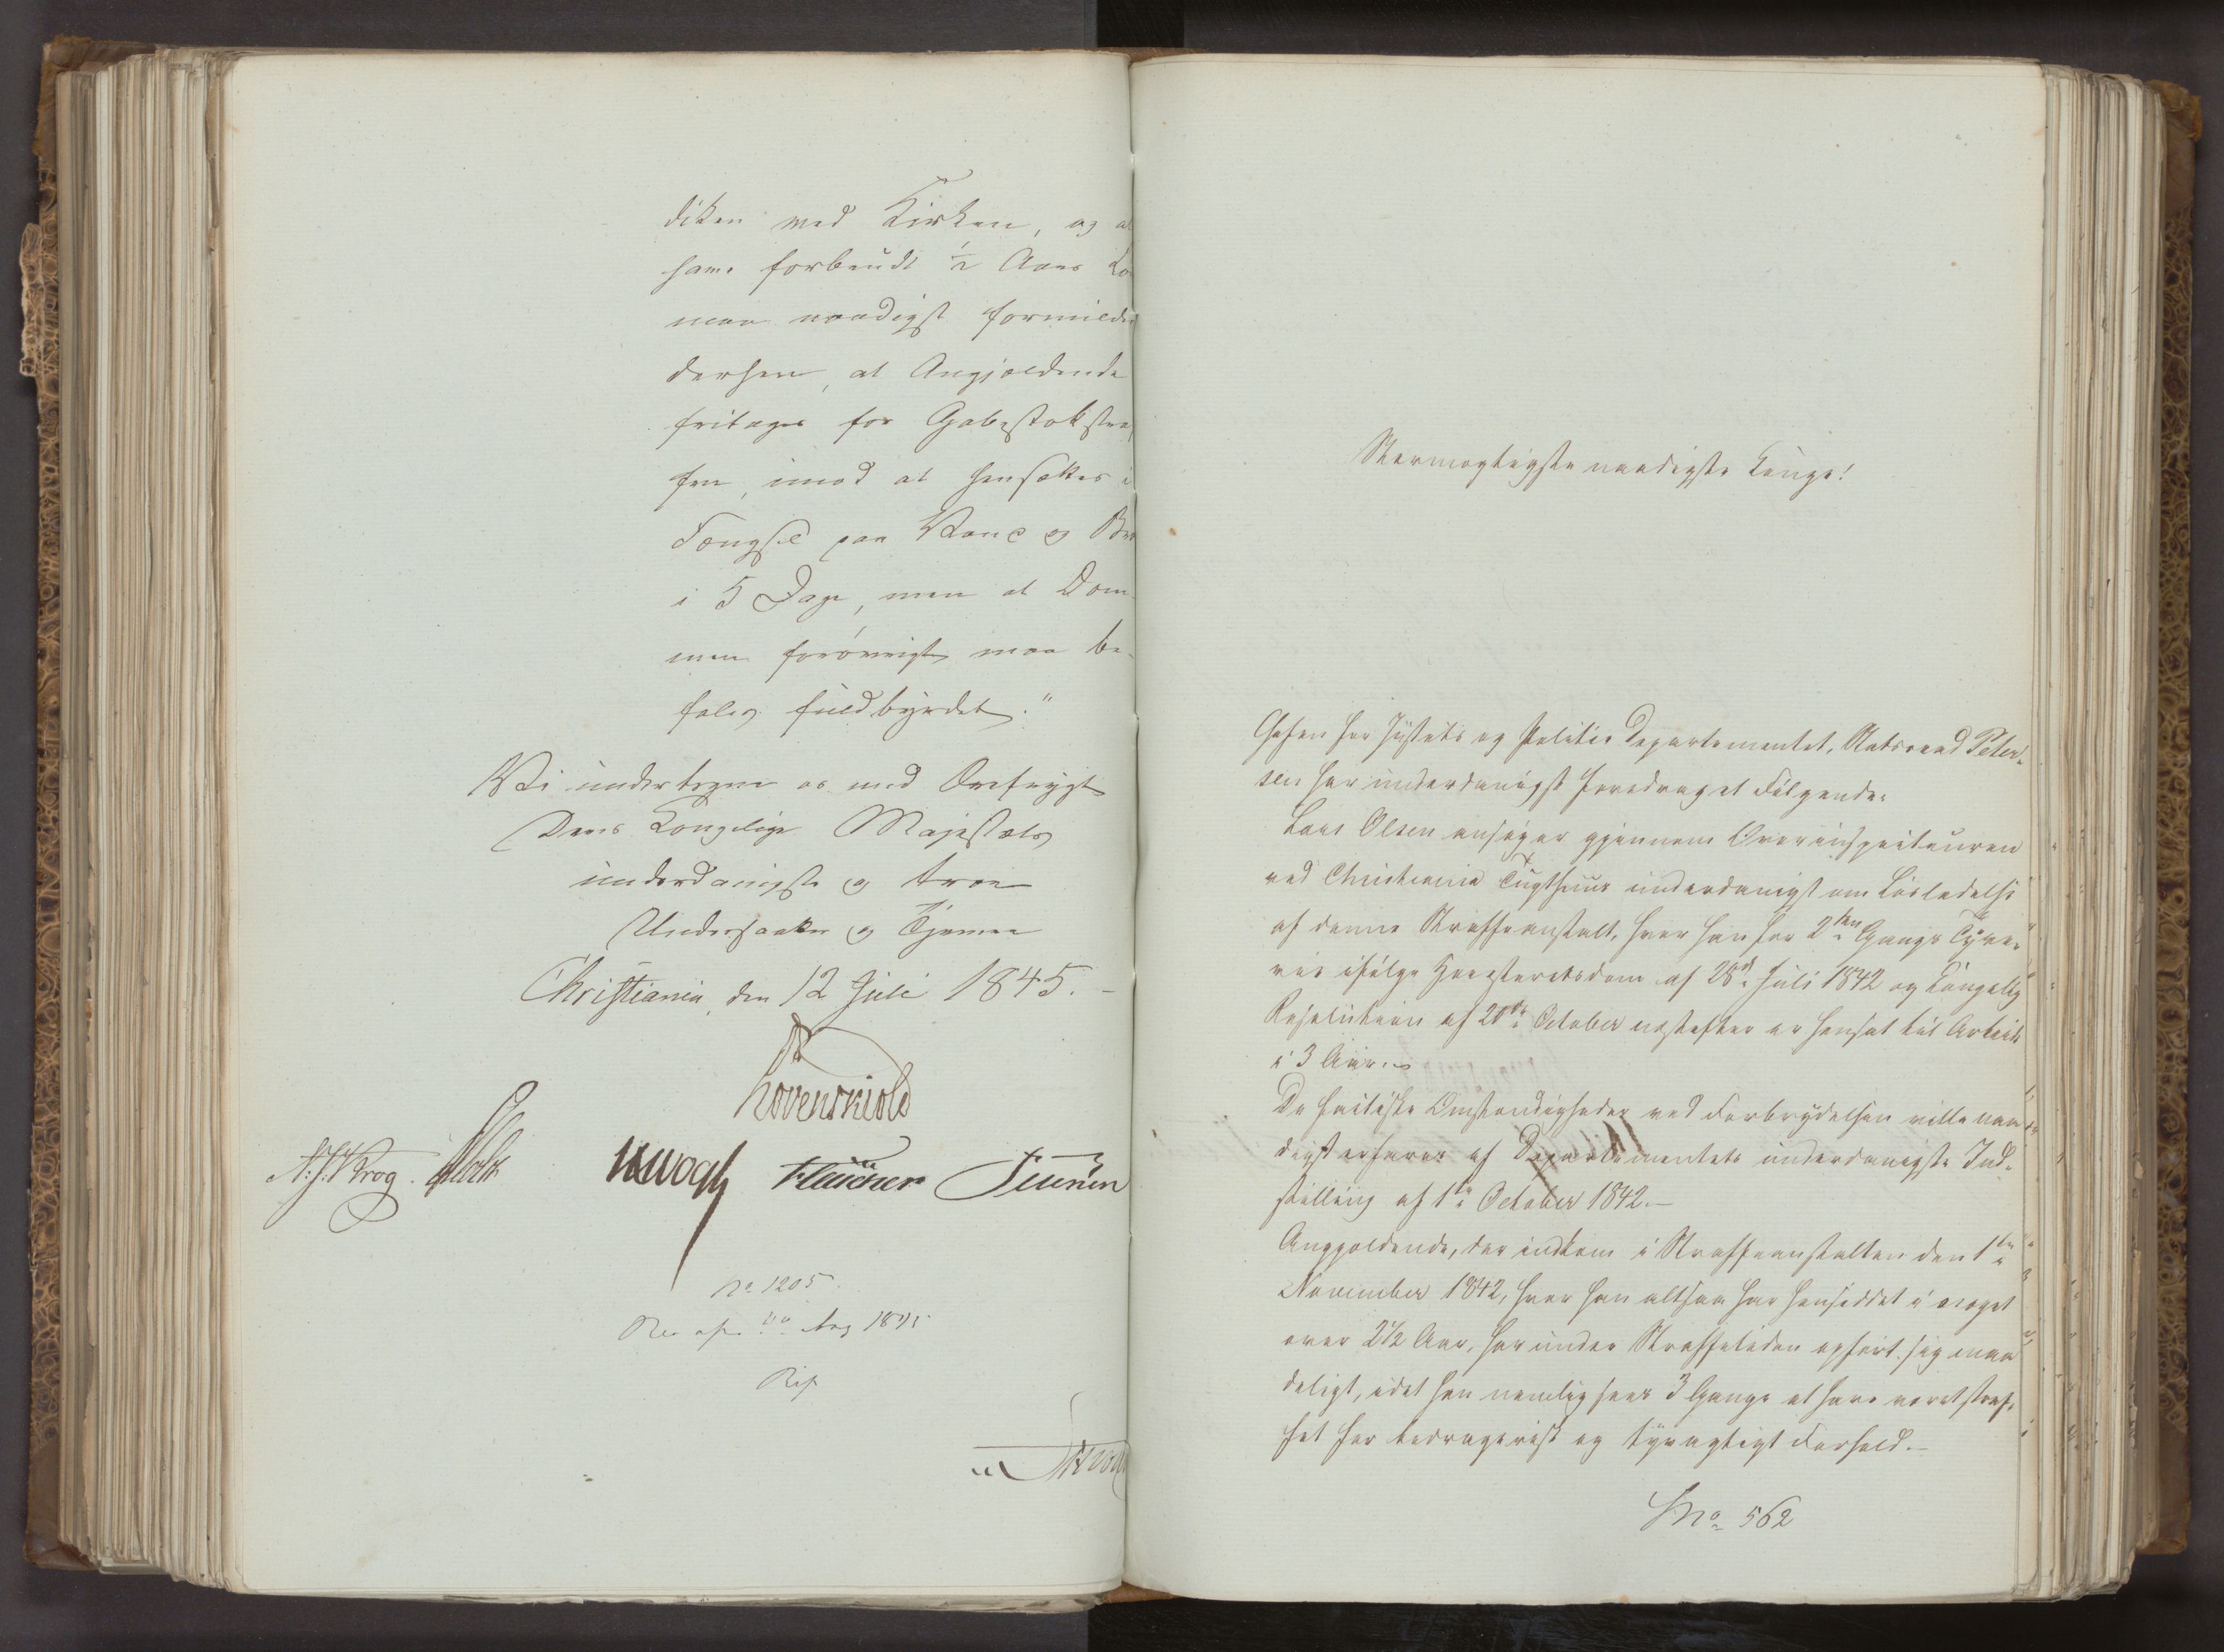 diken med Kirken, og at
ham forbeudt ½ Aars Lø
maa naadigst formildes
derhen, at Angjældende
fritages for Gabestokstraf
fen, imod at hensættes i
Fængsel paa Vand og Brø
i 5 Dage, men at Dom-
men forövrigt maa be-
fales fuldbyrdet."
Vi undertegne os med Ærefrygt
Deres Kongelige Majestæts
underdanigste og troe
Undersaatter og Tjenere
Christiania, den 12 Juli 1845.-
Løvenskiold
N. J. Krog. Holst JHVogt
No 1205
Res af Aug 1845
Stærmægtigste naadigste Konge!
Chefen for Justits og Politie Departementet, Statsraad Peter-
sen har underdanigst foredraget Følgende:
Lars Olsen ansøger gjennem Overinspecteuren
ved Christiania Tugthuus underdanigst om Løsladelse
af denne Straffeanstalt, hvor han for 2den Gangs Tyve-
rie ifølge Høiesteretsdom af 28de Juli 1842 og Kongelig
Resolution af 20de October næstefter er hensat til Arbeide
i 3 Aar.-
De factiske Omstændigheder ved Forbrydelsen ville naa-
digst erfares af Departementets underdanigste Ind-
stilling af 1ste October 1842.-
Angjældende, der indkom i Straffeanstalten den 1ste
November 1842, hvor han altsaa har hensiddet i noget
over 2½ Aar, har under Straffetiden opført sig maa
deligt, idet han nemlig sees 3 Gange at have været straf-
fet for bedragerisk og tyvagtigt Forhold.-
No 562